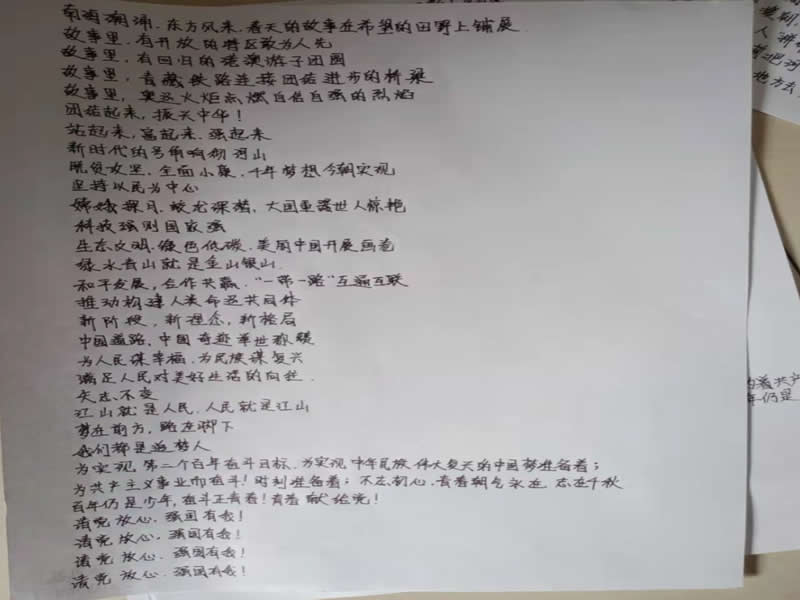 南海潮涌,东方风来,春天的故事在希望的田野上铺展
故事里,有开放的特区敢为人先
故事里,有回归的港澳游子团圆
故事里,青藏铁路连接团结进步的桥梁
故事里,奥运火炬点燃自信自强的烈焰
团结起来,振兴中华!
站起来,富起来,强起来
新时代的号角响彻河山
脱贫攻坚,全面小康,千年梦想今朝实现
坚持以民为中心
嫦娥探月,蛟龙深潜,大国重器世人惊艳
科技强则国家强
生态文明,绿色低碳,美丽中国开展画卷
绿水青山就是金山银山
和平发展,合作共赢,"一带一路"互通互联
推动构建人类命运共同体
新阶段,新理念,新格局
中国道路,中国奇迹举世称赞
为人民谋幸福,为民族谋复兴
满足人民对美好生活的向往
矢志不变
江山就是人民,人民就是江山
梦在前方,路在脚下
我们都是追梦人
为实现第二个百年奋斗目标,为实现中华民族伟大复兴的中国梦准备着;
为共产主义事业而奋斗!时刻准备着;不忘初心,青春朝气永在,志在千秋
百年仍是少年,奋斗正青春!青春献给党!
请党放心,强国有我!
请党放心,强国有我!
请党放心,强国有我!
请党放心,强国有我!
着共产
年仍是